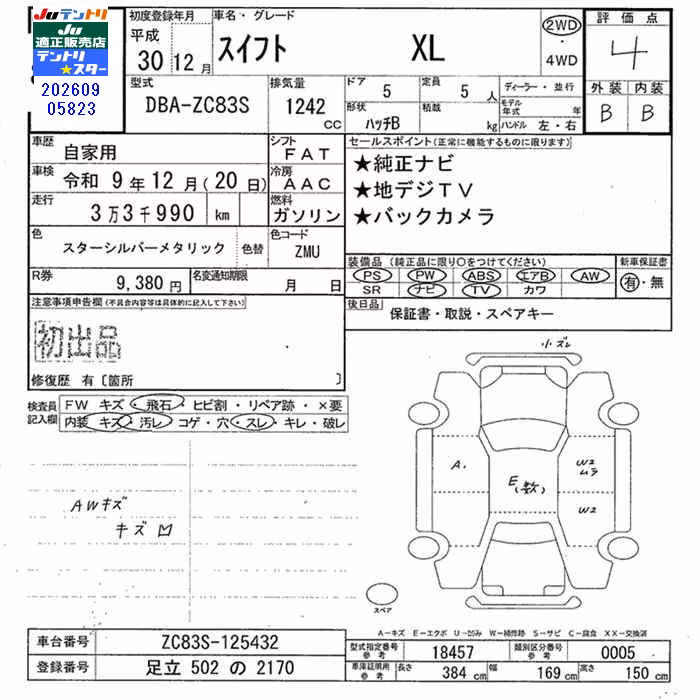 Juテントリ
Ju
適正販売店
テントリ
★スター
202609
05823
初度登録年月
平成
30 12月
車名・グレード
スイフト XL
2WD
・
4WD
評価点
4
外装 内装
B B
型式
DBA-ZC83S
排気量
1242
CC
ドア
5
定員
5人
形状
ハッチB
積載
kg
ディーラー・並行
モデル年式 年
ハンドル 左・右
車歴
自家用
シフト
FAT
車検
令和 9年12月(20日)
冷房
AAC
走行
3万3千990 km
燃料
ガソリン
色
スターシルバーメタリック
色替
色コード
ZMU
R券
9,380円
名変通知期限
月 日
セールスポイント(正常に機能するものに限ります)
★純正ナビ
★地デジTV
★バックカメラ
装備品(純正品に限り○をつけてください)
PS PW ABS エアB AW
SR ナビ TV カワ
新車保証書
有・無
後日品
保証書・取説・スペアキー
注意事項申告欄(不具合内容等は具体的に記入して下さい)
初出品
修復歴 有〔箇所 〕
検査員
記入欄
FW キズ・飛石・ヒビ割・リペア跡・×要
内装 キズ・汚レ・コゲ・穴・スレ・キレ・破レ
AWキズ
キズ凹
小ズレ
A.
E(数)
W2
ムラ
W2
スペア
A-キズ E-エクボ U-凹み W-補修跡 S-サビ C-腐食 XX-交換済
車台番号
ZC83S-125432
登録番号
足立 502 の 2170
型式指定番号
参考
18457
類別区分番号
参考
0005
車庫証明用
参考
長さ
384 cm
幅
169 cm
高さ
150 cm